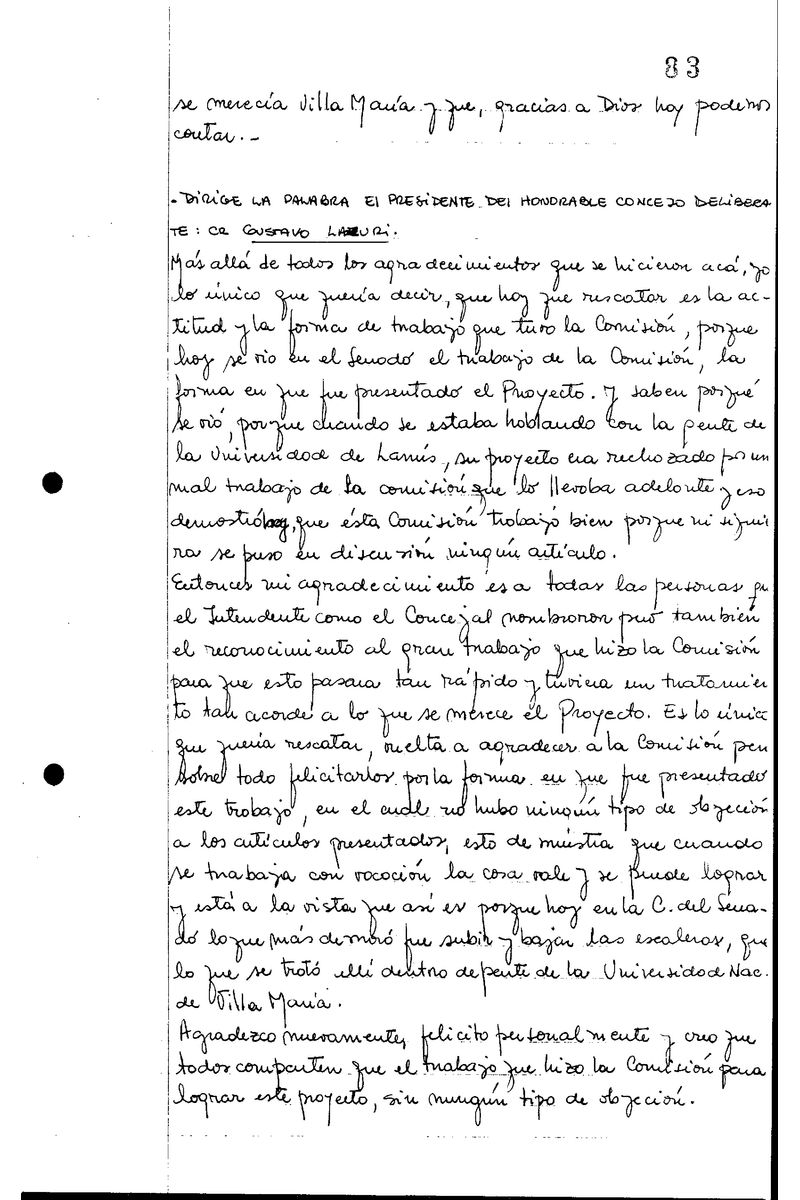 83
se merecía Villa María y que, gracias a Dios hoy podemos
contar.-
- DIRIGE LA PALABRA El PRESIDENTE DEl HONORABLE CONCEJO DELIBERA
TE: CR GUSTAVO LAZURI.
Más allá de todos los agradecimientos que se hicieron acá, yo
lo único que quería decir, que hoy que rescatar es la ac-
titud y la forma de trabajo que tuvo la Comisión, porque
hoy se vio en el Senado el trabajo de la Comisión, la
forma en que fue presentado el Proyecto. Y saben porqué
se vió, porque cuando se estaba hablando con la gente de
la Universidad de Lanús, su proyecto era rechazado por un
mal trabajo de la comisión que lo llevaba adelante y eso
demostró hoy, que ésta Comisión trabajó bien porque ni siquie
ra se puso en discusión ningún artículo.
Entonces mi agradecimiento es a todas las personas qu
el Intendente como el Concejal nombraron pero también
el reconocimiento al gran trabajo que hizo la Comisión
para que esto pasara tan rápido y tuviera un tratamien
to tan acorde a lo que se merece el Proyecto. Es lo único
que quería rescatar, vuelta a agradecer a la Comisión pero
sobre todo felicitarlos por la forma en que fue presentado
este trabajo, en el cual no hubo ningún tipo de objeción
a los artículos presentados, esto de muestra que cuando
se trabaja con vocación la cosa vale y se puede lograr
y está a la vista que así es porque hoy en la C. del Sena-
do lo que más demoró fue subir y bajar las escaleras, que
lo que se trató allí dentro de parte de la Universidad Nac.
de Villa María.
Agradezco nuevamente, felicito personalmente y creo que
todos comparten que el trabajo que hizo la Comisión para
lograr este proyecto, sin ningún tipo de objeción.